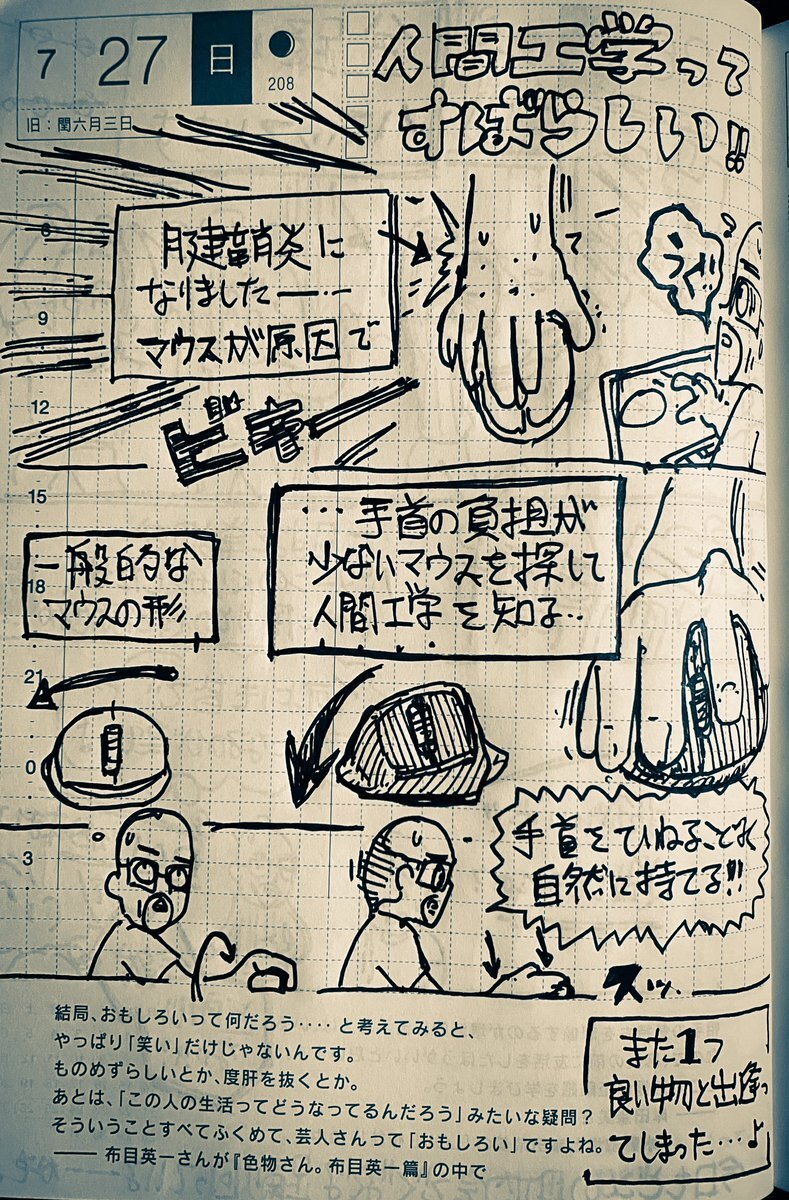 7 27 日
208
旧：閏六月三日
人間工学って
すばらしい!!
腱鞘炎に
なりましたー…
マウスが原因で
うぐ
ビキー
6
9
12
15
18
21
0
3
…手首の負担が
少ないマウスを探して
人間工学を知る…
一般的な
マウスの形
手首をひねることなく
自然に持てる!!
スッ
結局、おもしろいって何だろう‥‥と考えてみると、
やっぱり「笑い」だけじゃないんです。
ものめずらしいとか、度肝を抜くとか。
あとは、「この人の生活ってどうなってるんだろう」みたいな疑問？
そういうことすべてふくめて、芸人さんって「おもしろい」ですよね。
―― 布目英一さんが『色物さん。布目英一篇』の中で
また1つ
良い物と出逢っ
てしまった…よ